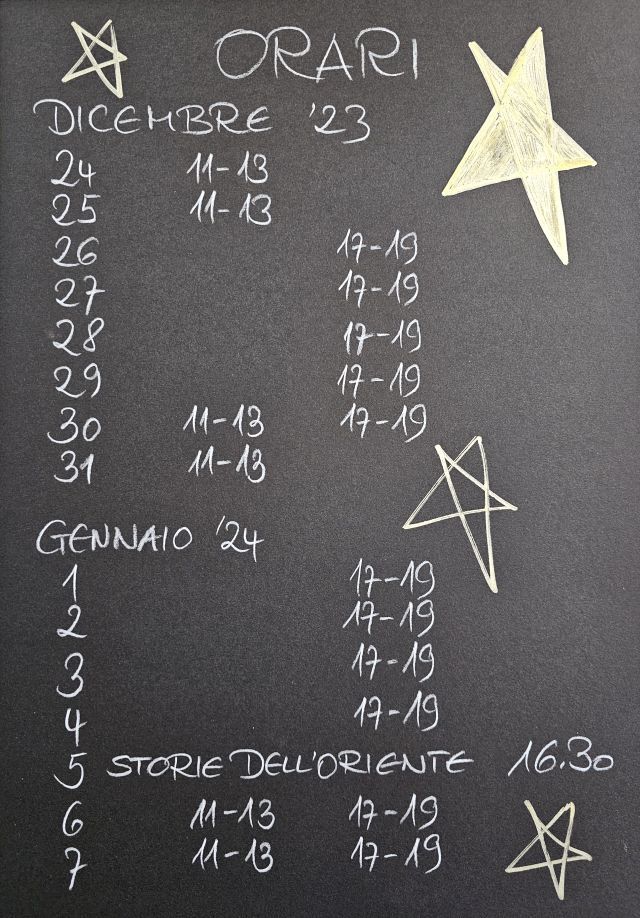 ORARI
DICEMBRE '23
24 11-13
25 11-13
26 17-19
27 17-19
28 17-19
29 17-19
30 11-13 17-19
31 11-13
GENNAIO '24
1 17-19
2 17-19
3 17-19
4 17-19
5 STORIE DELL'ORIENTE 16.30
6 11-13 17-19
7 11-13 17-19